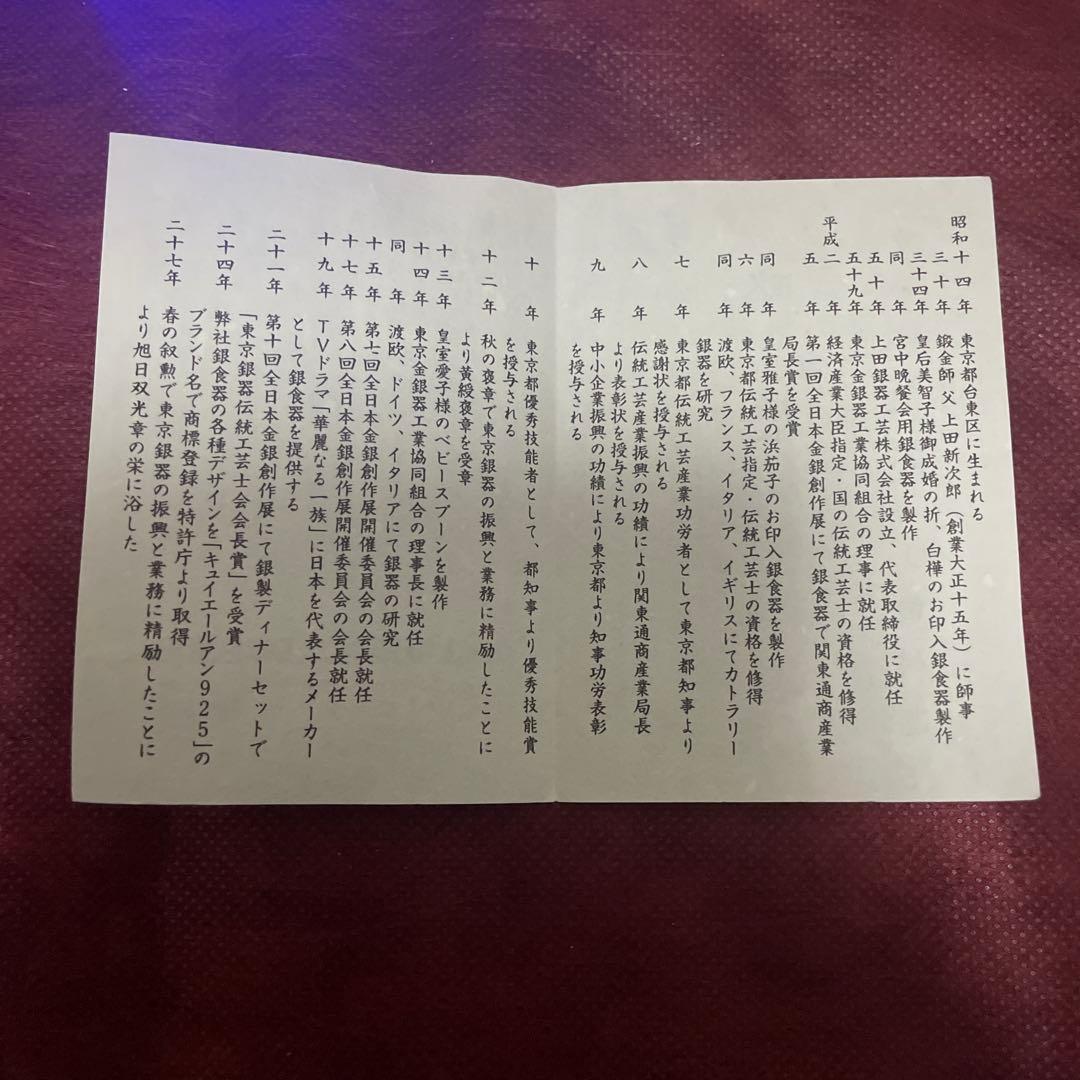 昭和十四年 東京都台東区に生まれる
三十年 鍛金師 父 上田新次郎(創業大正十五年)に師事
三十四年 皇后美智子様御成婚の折、白樺のお印入銀食器製作
同年 宮中晩餐会用銀食器を製作
五十年 上田銀器工芸株式会社設立、代表取締役に就任
五十九年 東京金銀器工業協同組合の理事に就任
平成二年 経済産業大臣指定・国の伝統工芸士の資格を修得
五年 第一回全日本金銀創作展にて銀食器で関東通商産業
局長賞を受賞
同年 皇室雅子様の浜茄子のお印入銀食器を製作
六年 東京都伝統工芸指定・伝統工芸士の資格を修得
同年 渡欧、フランス、イタリア、イギリスにてカトラリー
銀器を研究
七年 東京都伝統工芸産業功労者として東京都知事より
感謝状を授与される
八年 伝統工芸産業振興の功績により関東通商産業局長
より表彰状を授与される
九年 中小企業振興の功績により東京都より知事功労表彰
を授与される
十年 東京都優秀技能者として、都知事より優秀技能賞
を授与される
十二年 秋の褒章で東京銀器の振興と業務に精励したことに
より黄綬褒章を受章
十三年 皇室愛子様のベビースプーンを製作
十四年 東京金銀器工業協同組合の理事長に就任
同年 渡欧、ドイツ、イタリアにて銀器の研究
十五年 第七回全日本金銀創作展開催委員会の会長就任
十七年 第八回全日本金銀創作展開催委員会の会長就任
十九年 TVドラマ「華麗なる一族」に日本を代表するメーカー
として銀食器を提供する
二十一年 第十回全日本金銀創作展にて銀製ディナーセットで
「東京銀器伝統工芸士会会長賞」を受賞
二十四年 弊社銀食器の各種デザインを「キュイエールアン925」の
ブランド名で商標登録を特許庁より取得
二十七年 春の叙勲で東京銀器の振興と業務に精励したことに
より旭日双光章の栄に浴した